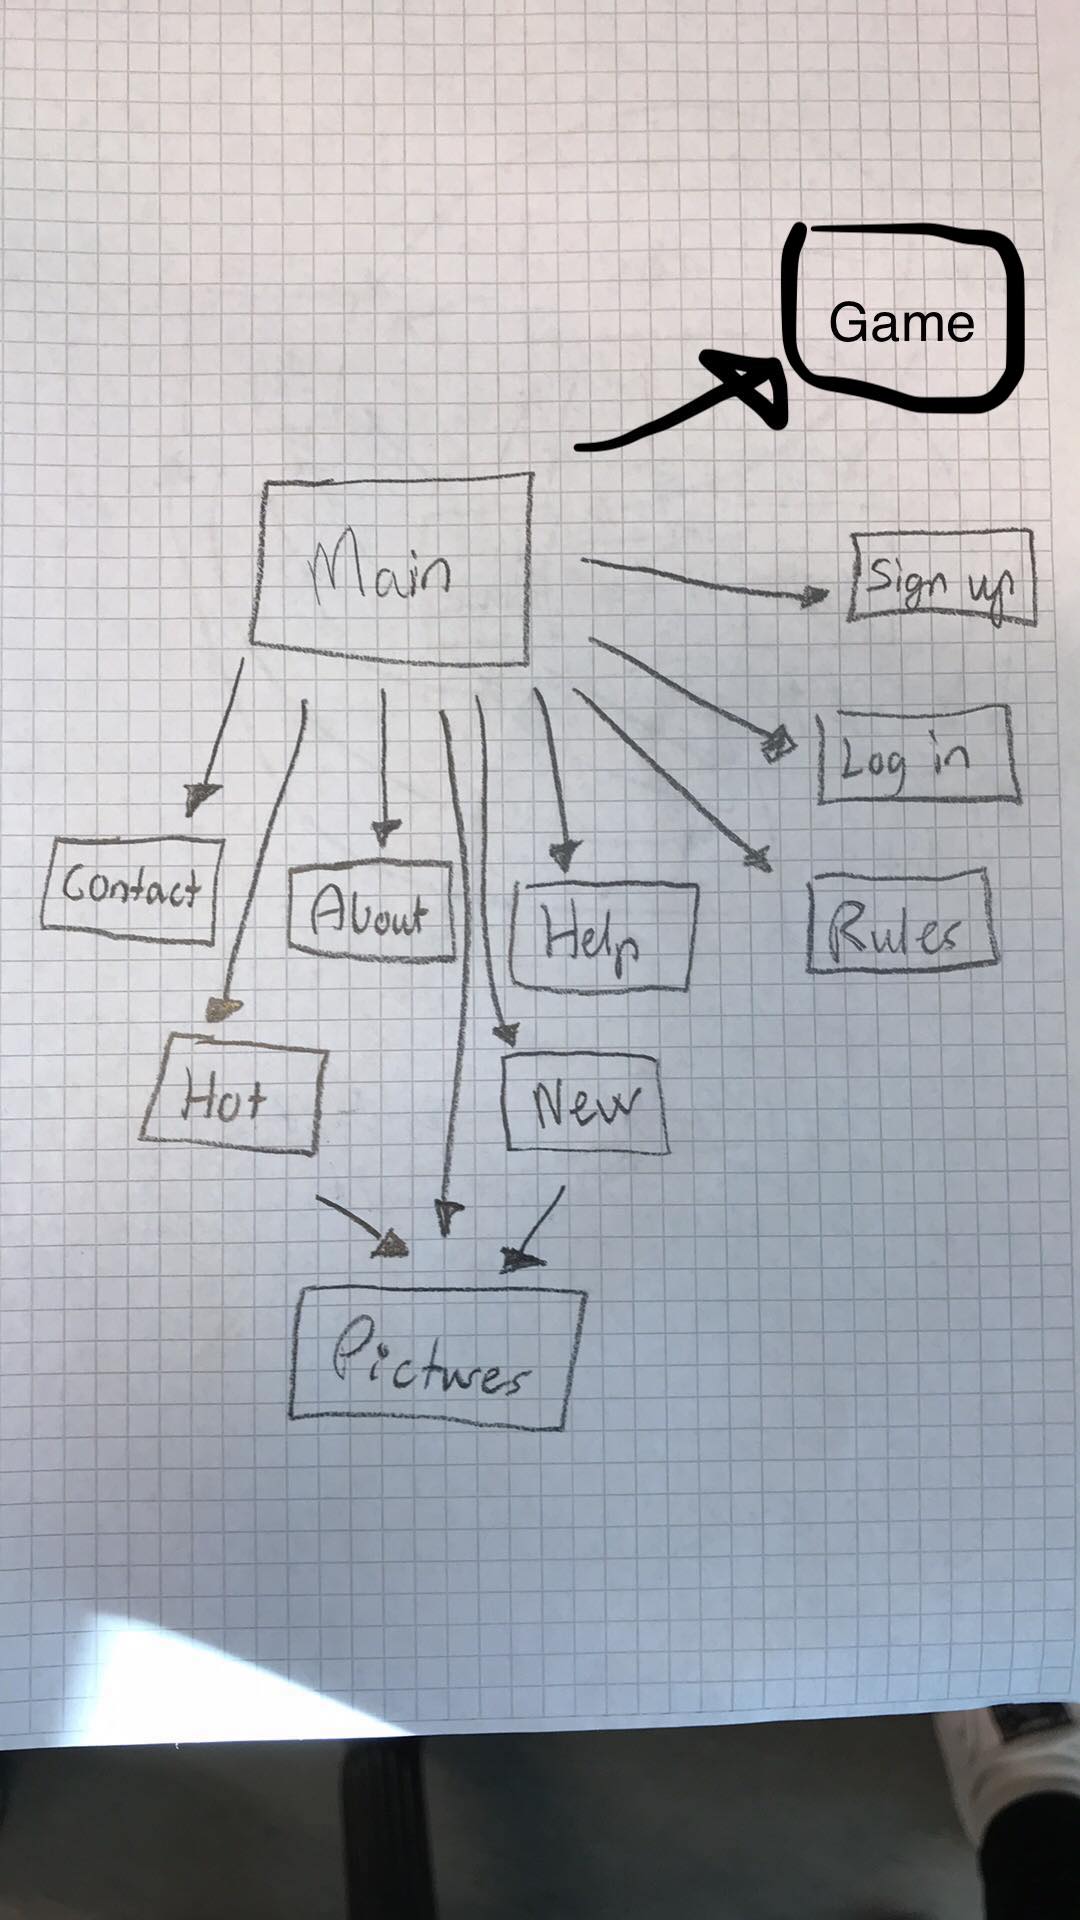 Game
Main
Sign up
Log in
Contact
About
Help
Rules
Hot
New
Pictures